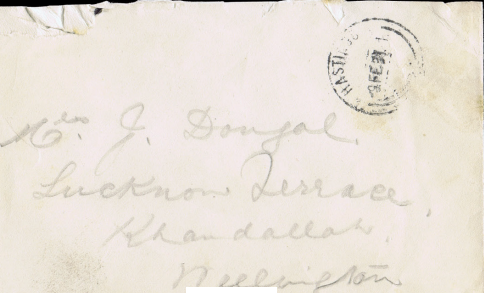 HASTINGS
FE 31
Mrs J. Dougal.
Lucknow Terrace,
Khandallah,
Wellington